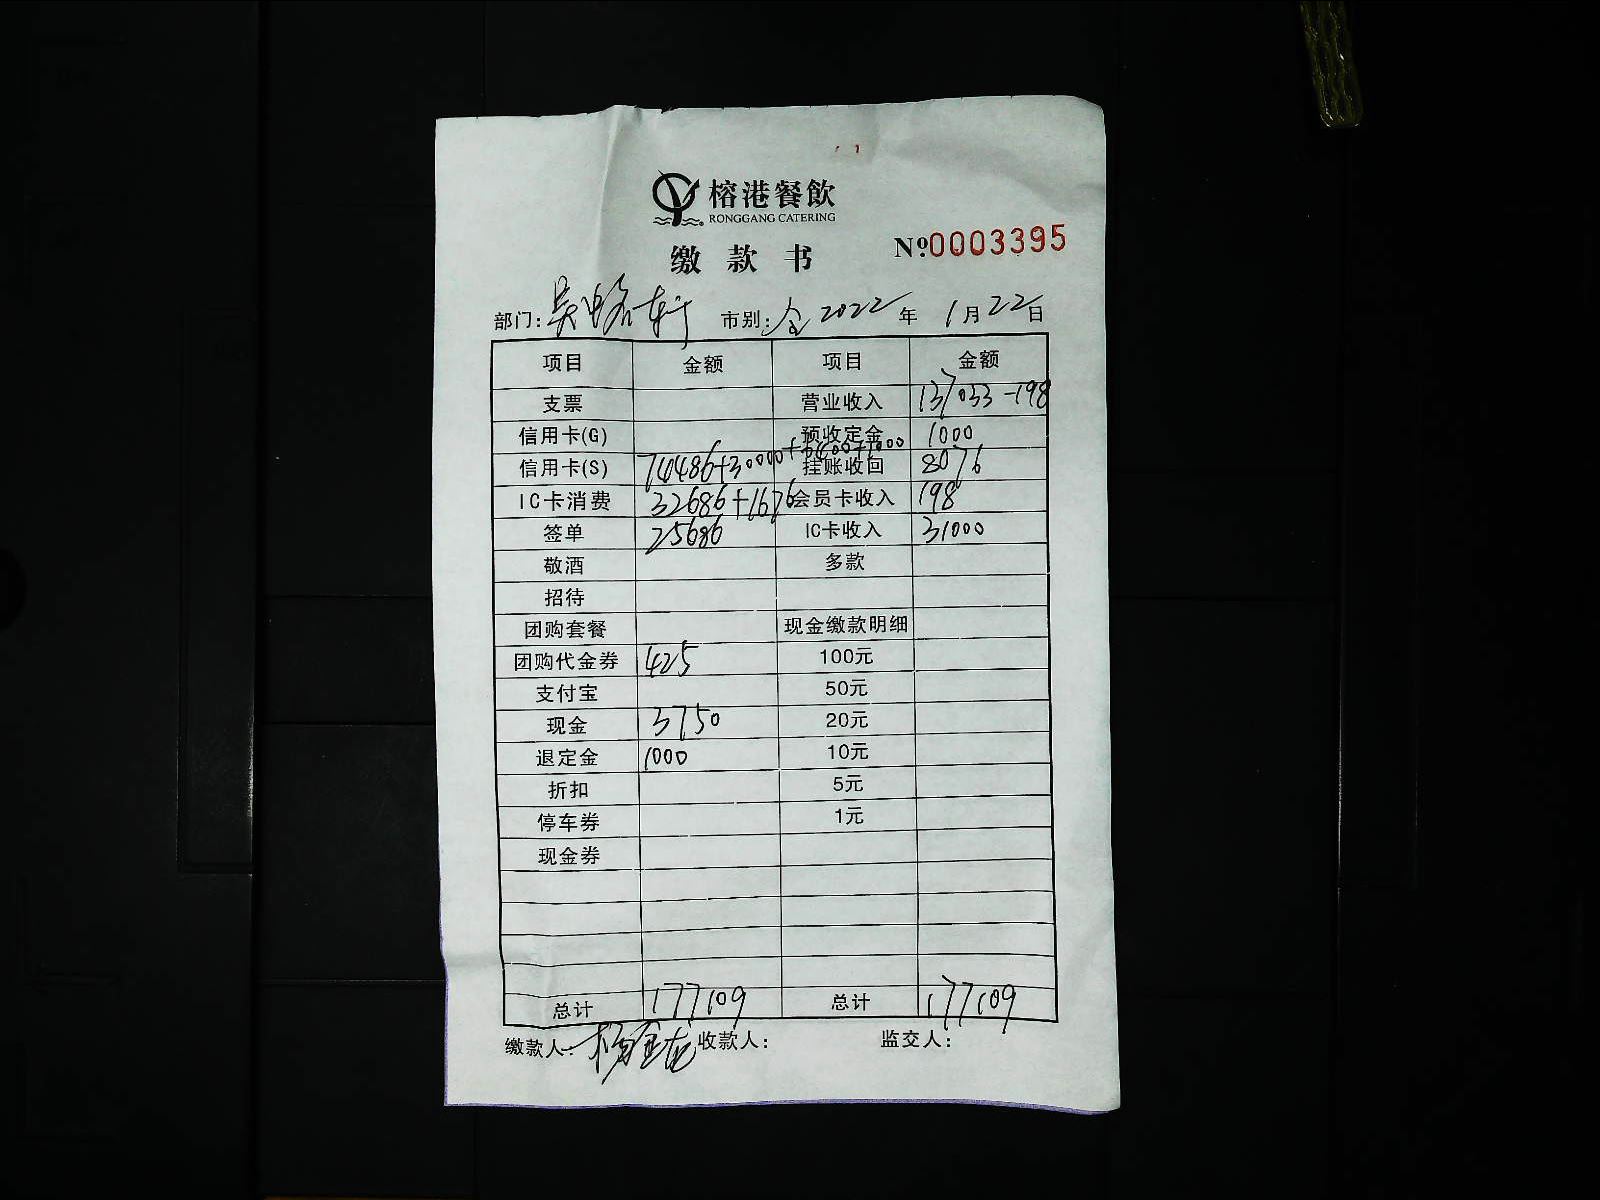 榕港餐飲
RONGGANG CATERING
缴款书 №0003395
部门: 市别:全 2022年 1月22日
项目 金额 项目 金额
支票 营业收入 137033-198
信用卡(G) 预收定金 1000
信用卡(S) 74486+30000+6400+1000 挂账收回 8076
IC卡消费 32686+1676 会员卡收入 198
签单 25686 IC卡收入 31000
敬酒 多款
招待
团购套餐 现金缴款明细
团购代金券 425 100元
支付宝 50元
现金 3750 20元
退定金 1000 10元
折扣 5元
停车券 1元
现金券
总计 177109 总计 177109
缴款人:杨金龙 收款人: 监交人: